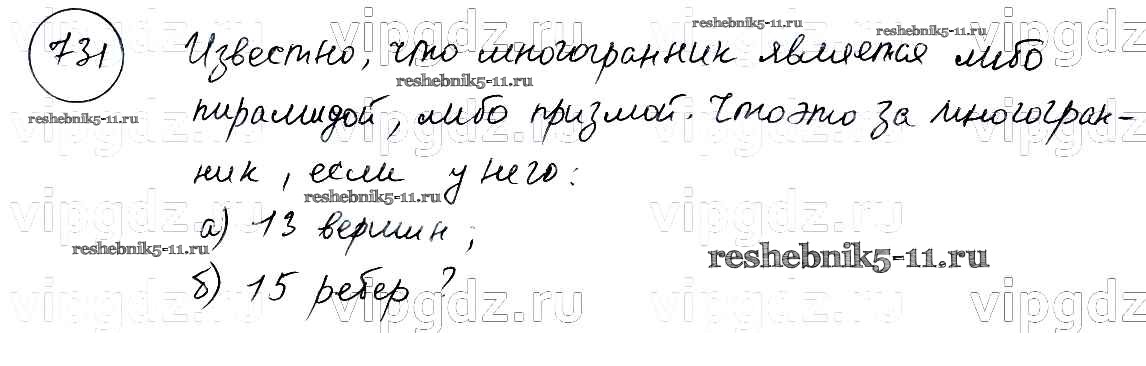 vipgdz.ru vipgdz.ru vipgdz.ru vipgdz.ru
731 Известно, что многогранник является либо
reshebnik5-11.ru
reshebnik5-11.ru
пирамидой, либо призмой. Что это за многогран-
reshebnik5-11.ru
vipgdz.ru vipgdz.ru vipgdz.ru vipgdz.ru
ник, если у него:
reshebnik5-11.ru
vipgdz.ru vipgdz.ru vipgdz.ru vipgdz.ru
а) 13 вершин;
reshebnik5-11.ru
reshebnik5-11.ru
б) 15 ребер?
vipgdz.ru vipgdz.ru vipgdz.ru vipgdz.ru